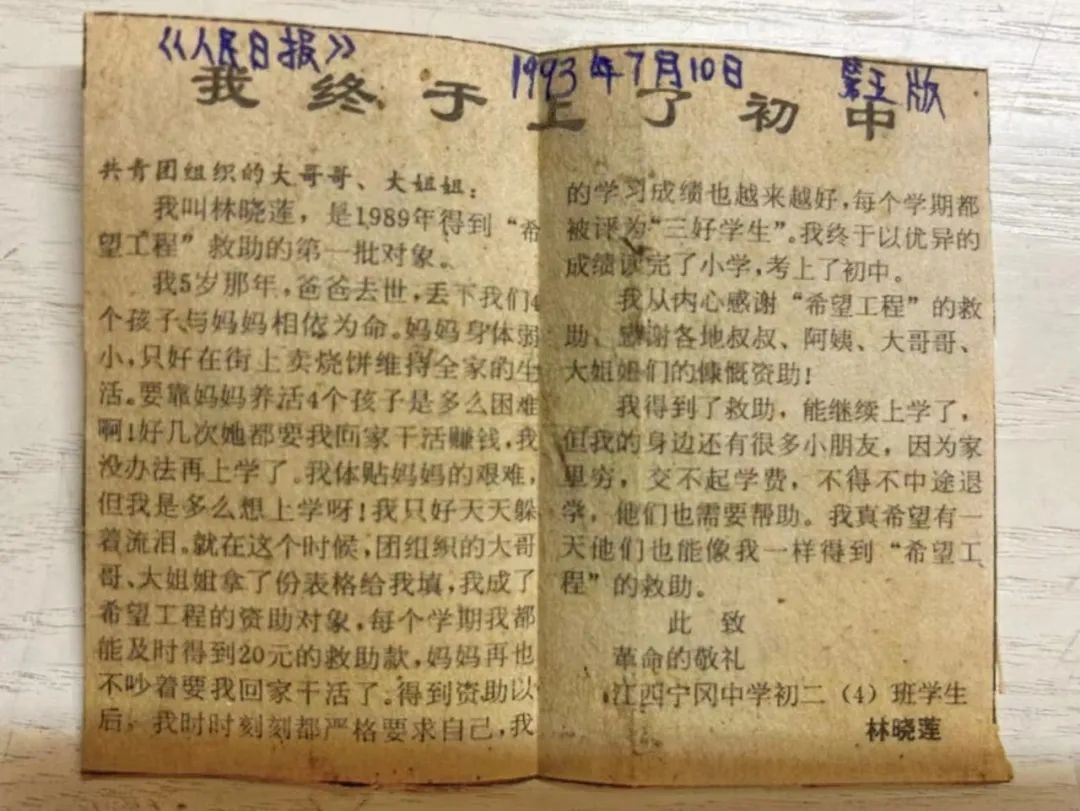 《人民日报》 1993年7月10日 第五版
我终于上了初中
共青团组织的大哥哥、大姐姐：
我叫林晓莲，是1989年得到“希
望工程”救助的第一批对象。
我5岁那年，爸爸去世，丢下我们4
个孩子与妈妈相依为命。妈妈身体弱
小，只好在街上卖烧饼维持全家的生
活。要靠妈妈养活4个孩子是多么困难
啊！好几次她都要我回家干活赚钱，我
没办法再上学了。我体贴妈妈的艰难，
但我是多么想上学呀！我只好天天躲
着流泪。就在这个时候，团组织的大哥
哥、大姐姐拿了份表格给我填，我成了
希望工程的资助对象，每个学期我都
能及时得到20元的救助款，妈妈再也
不吵着要我回家干活了。得到资助以
后，我时时刻刻都严格要求自己，我
的学习成绩也越来越好，每个学期都
被评为“三好学生”。我终于以优异的
成绩读完了小学，考上了初中。
我从内心感谢“希望工程”的救
助、感谢各地叔叔、阿姨、大哥哥、
大姐姐们的慷慨资助！
我得到了救助，能继续上学了，
但我的身边还有很多小朋友，因为家
里穷，交不起学费，不得不中途退
学，他们也需要帮助。我真希望有一
天他们也能像我一样得到“希望工
程”的救助。
此 致
革命的敬礼
江西宁冈中学初二（4）班学生
林晓莲